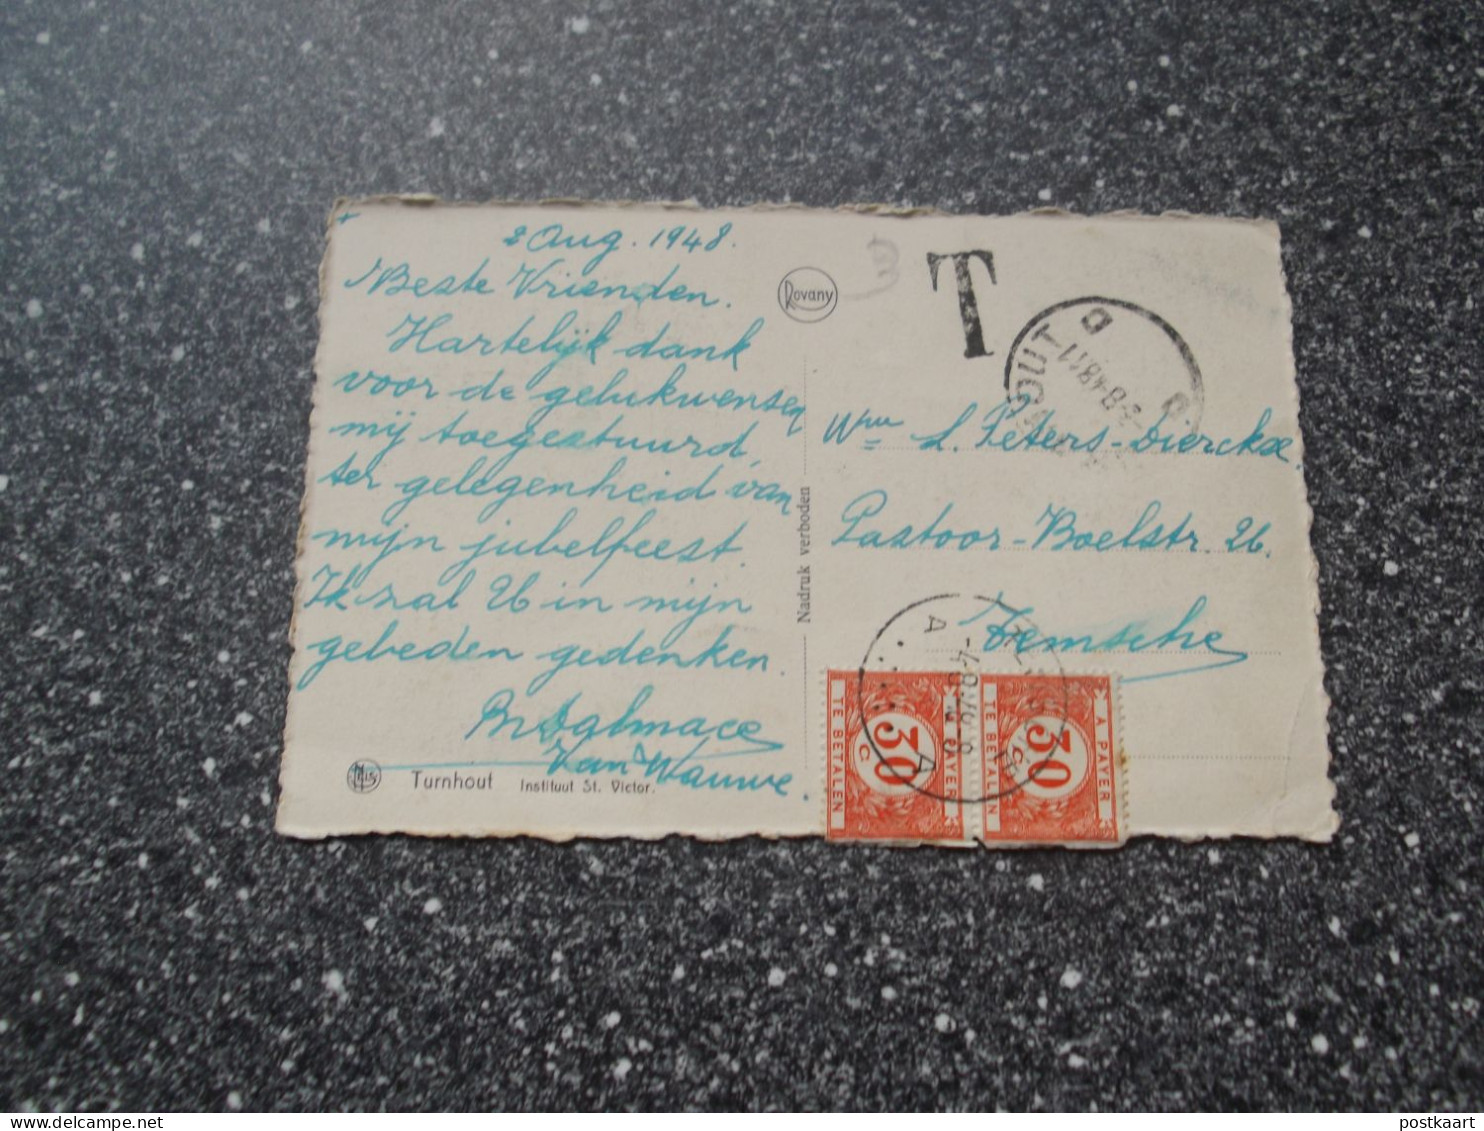 +
2 Aug. 1948.
Beste Vrienden.
Hartelijk dank
voor de gelukwensen
mij toegestuurd,
ter gelegenheid van
mijn jubelfeest.
Ik zal U in mijn
gebeden gedenken.
Br Dalmace
Van Wauwe.
Turnhout Instituut St. Victor.
Nels
Rovany
Nadruk verboden
T
OUT
-3-8-48 11
D
Wwe L. Peters-Dierckx.
Pastoor-Boelstr. 26.
Temsche
A
-4-8
A
A PAYER
30
c.
TE BETALEN
A PAYER
30
c.
TE BETALEN
postkaart